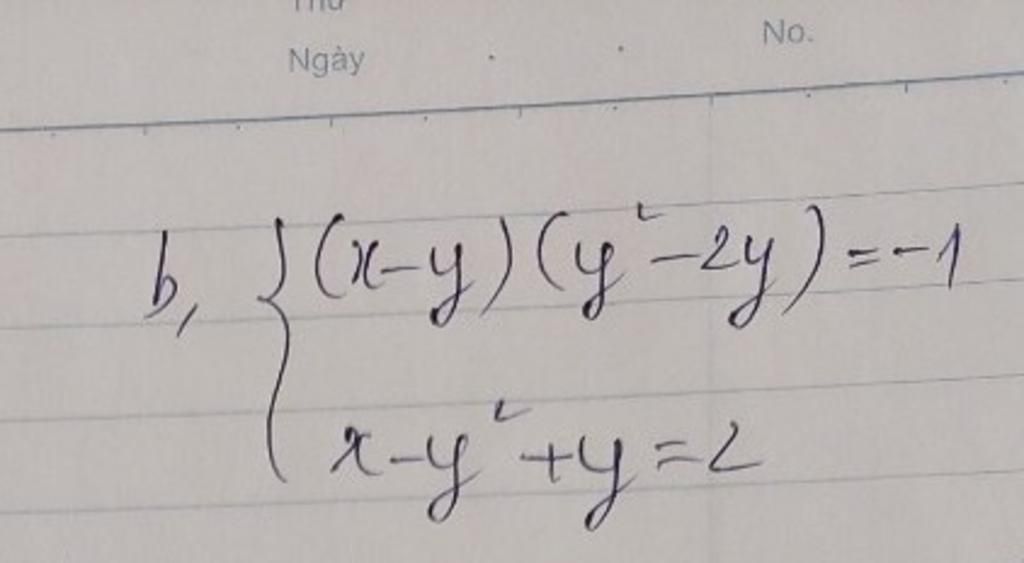 Thứ
Ngày No.
b, { (x-y)(y²-2y)=-1
x-y²+y=2